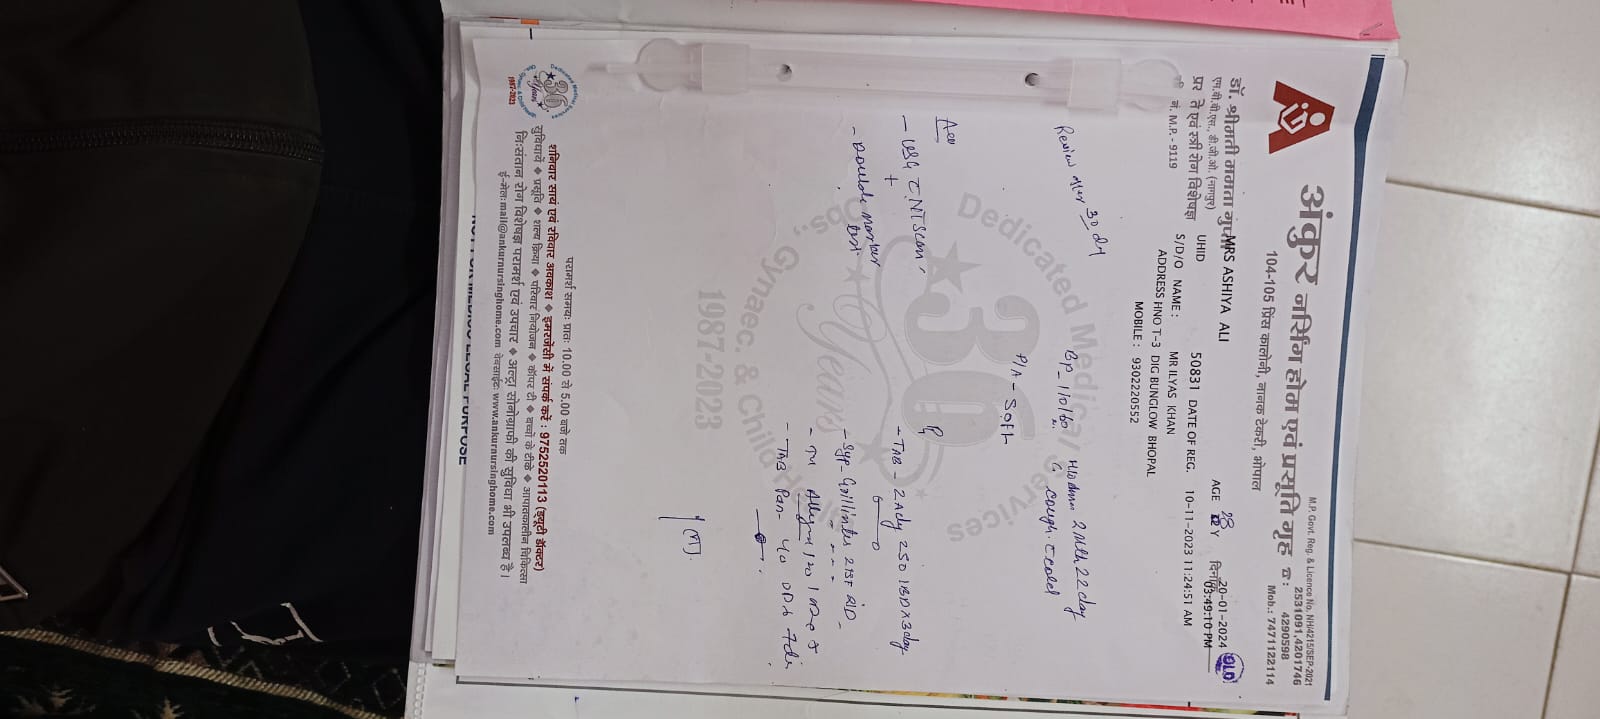 अंकुर नर्सिंग होम एवं प्रसूति गृह
104-105 प्रिंस कालोनी, नानक टेकरी, भोपाल
M.P. Govt. Reg. & Licence No. NH/4215/SEP-2021
☎ : 2531091,4201746
4290598
Mob.: 7471122114
डॉ. श्रीमती ममता गुप्ता
एम.बी.बी.एस., डी.जी.ओ. (नागपुर)
एवं स्त्री रोग विशेषज्ञ
नं. M.P. - 9119
MRS ASHIYA ALI AGE 28 Y दिनांक 20-01-2024
03:49:10 PM OLD
UHID 50831 DATE OF REG. 10-11-2023 11:24:51 AM
S/D/O NAME : MR ILYAS KHAN
ADDRESS HNO T-3 DIG BUNGLOW BHOPAL
MOBILE : 9302220552
Review after 30 day
BP - 110/60
2 Mth 22 day
cough cold
P/A - Soft
Adv
- USG NT Scan
+
- Double marker
test
- TAB - 250 1BD x 3day
- Syp-
- TAB Pan- 40
Dedicated Medical Services
36 Years
Obs., Gynaec. & Child
1987-2023
परामर्श समय: प्रातः 10.00 से 5.00 बजे तक
शनिवार सायं एवं रविवार अवकाश ◆ इमरजेंसी में संपर्क करें : 9752520113 (ड्यूटी डॉक्टर)
सुविधायें ◆ प्रसूति ◆ शल्य क्रिया ◆ परिवार नियोजन ◆ कॉपर टी ◆ बच्चों के टीके ◆ आपातकालीन चिकित्सा
निःसंतान रोग विशेषज्ञ परामर्श एवं उपचार ◆ अल्ट्रा सोनोग्राफी की सुविधा भी उपलब्ध है।
ई-मेल: mail@ankurnursinghome.com वेबसाईट: www.ankurnursinghome.com
36 Years
1987-2023
NOT FOR MEDICO LEGAL PURPOSE